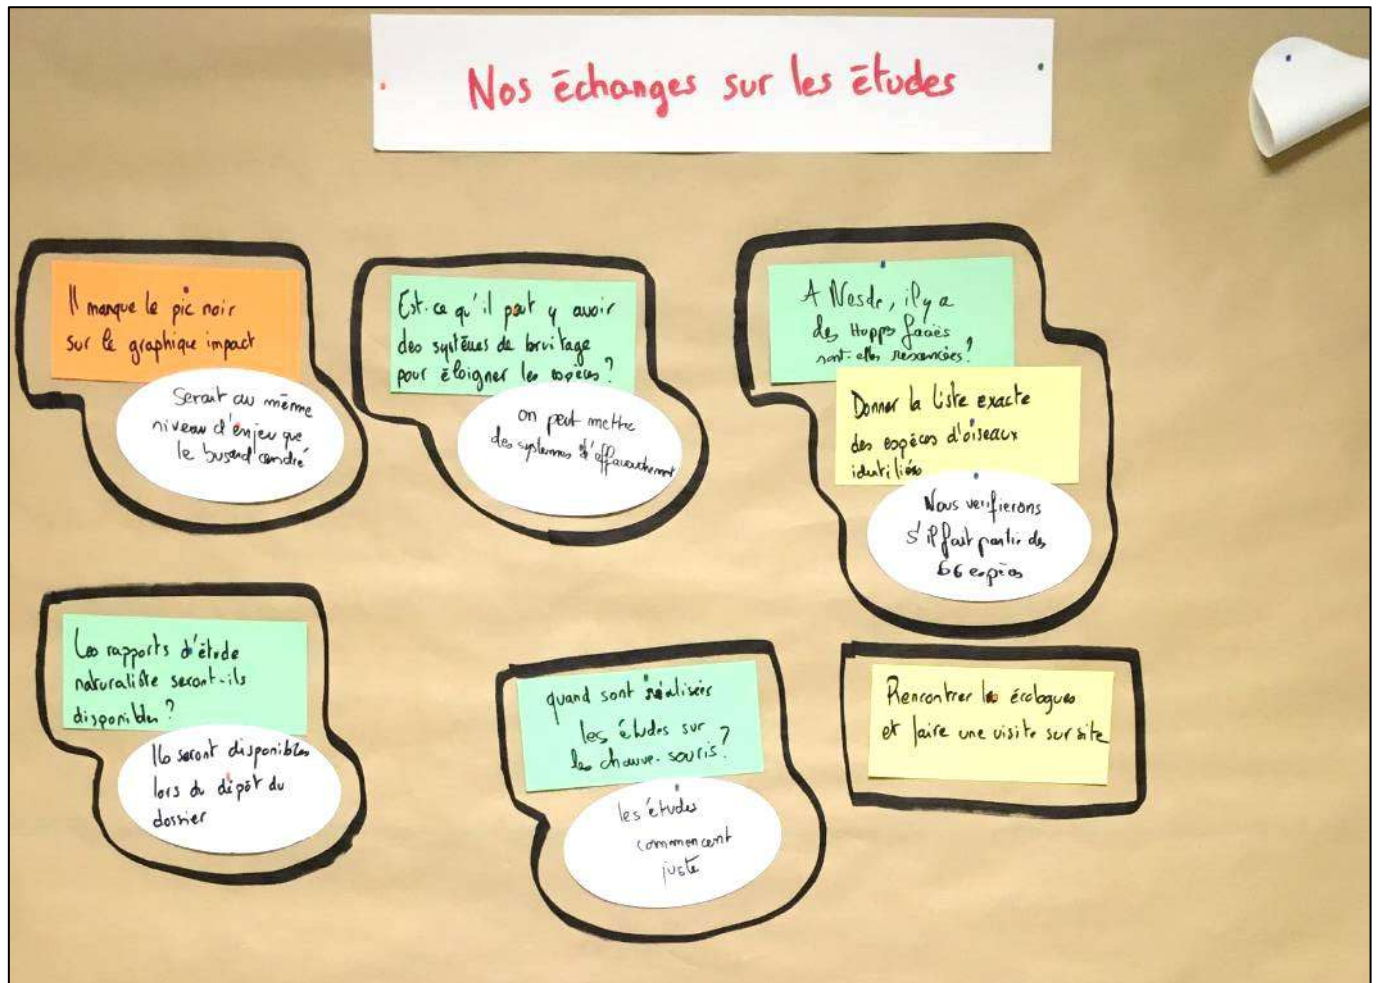 Nos échanges sur les études
Il manque le pic noir
sur le graphique impact
Serait au même
niveau d'enjeu que
le busard cendré
Est-ce qu'il peut y avoir
des systèmes de bruitage
pour éloigner les espèces ?
on peut mettre
des systemes d'effarouchement
A Nesde, il y a
des Huppes
sont-elles recencées ?
Donner la liste exacte
des espèces d'oiseaux
identifiés
Nous verifierons
s'il fait partie des
66 espèces
Les rapports d'étude
naturaliste seront-ils
disponibles ?
Ils seront disponibles
lors du dépôt du
dossier
quand sont réalisées
les études sur
les chauve-souris ?
les études
commencent
juste
Rencontrer les écologues
et faire une visite sur site